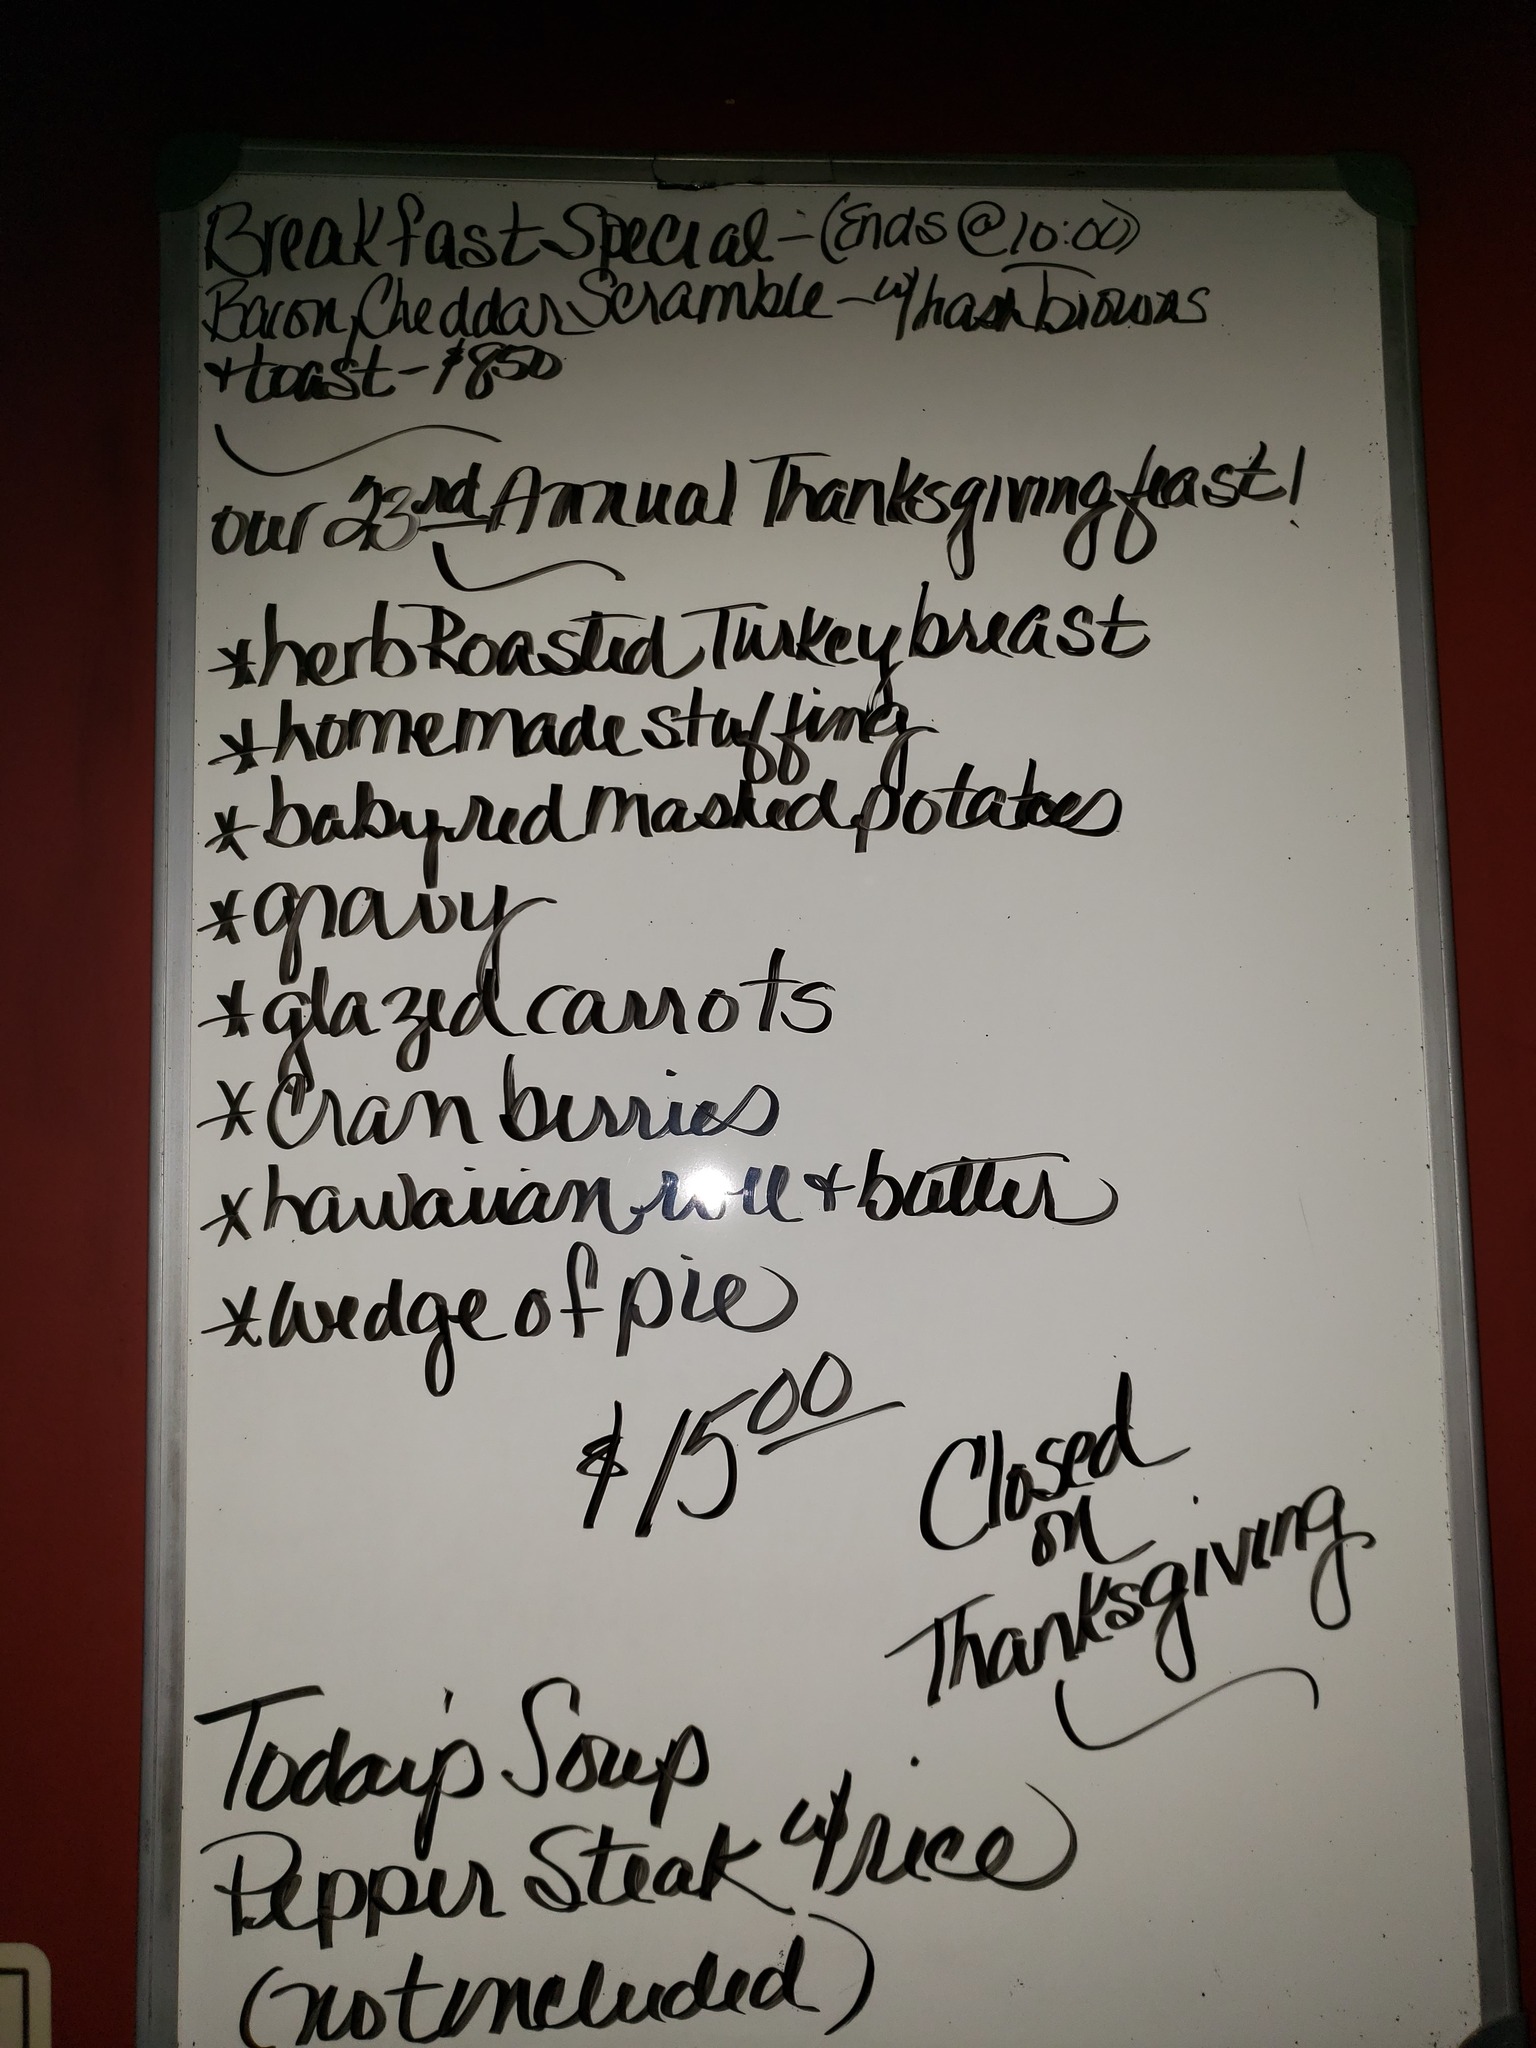 Breakfast Special - (Ends @ 10:00)
Bacon, Cheddar Scramble - w/hash browns
+ toast - $850
our 23rd Annual Thanksgiving feast!
*herb Roasted Turkey breast
*homemade stuffing
*baby red mashed potatoes
*gravy
*glazed carrots
*Cranberries
*hawaiian roll + butter
*wedge of pie
$15 00
Closed
on
Thanksgiving
Today's Soup
Pepper Steak w/rice
(not included)